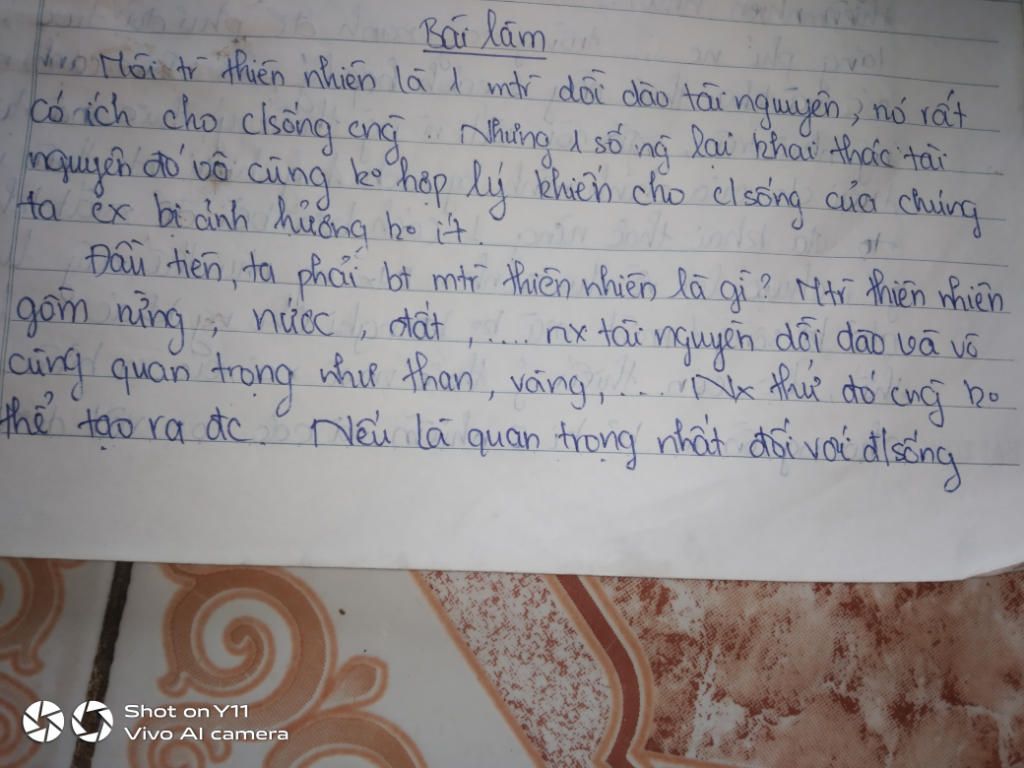 Bài làm
Môi tr thiên nhiên là 1 mtr dồi dào tài nguyên, nó rất
có ích cho c/sống cng. Nhưng 1 số ng lại khai thác tài
nguyên đó vô cùng ko hợp lý khiến cho c/sống của chúng
ta cx bị ảnh hưởng ko ít.
Đầu tiên, ta phải bt mtr thiên nhiên là gì? Mtr thiên nhiên
gồm rừng, nước, đất,.... nx tài nguyên dồi dào và vô
cùng quan trọng như than, vàng,... Nx thứ đó cng ko
thể tạo ra đc. Nếu là quan trọng nhất đối với đ/sống
Shot on Y11
Vivo AI camera